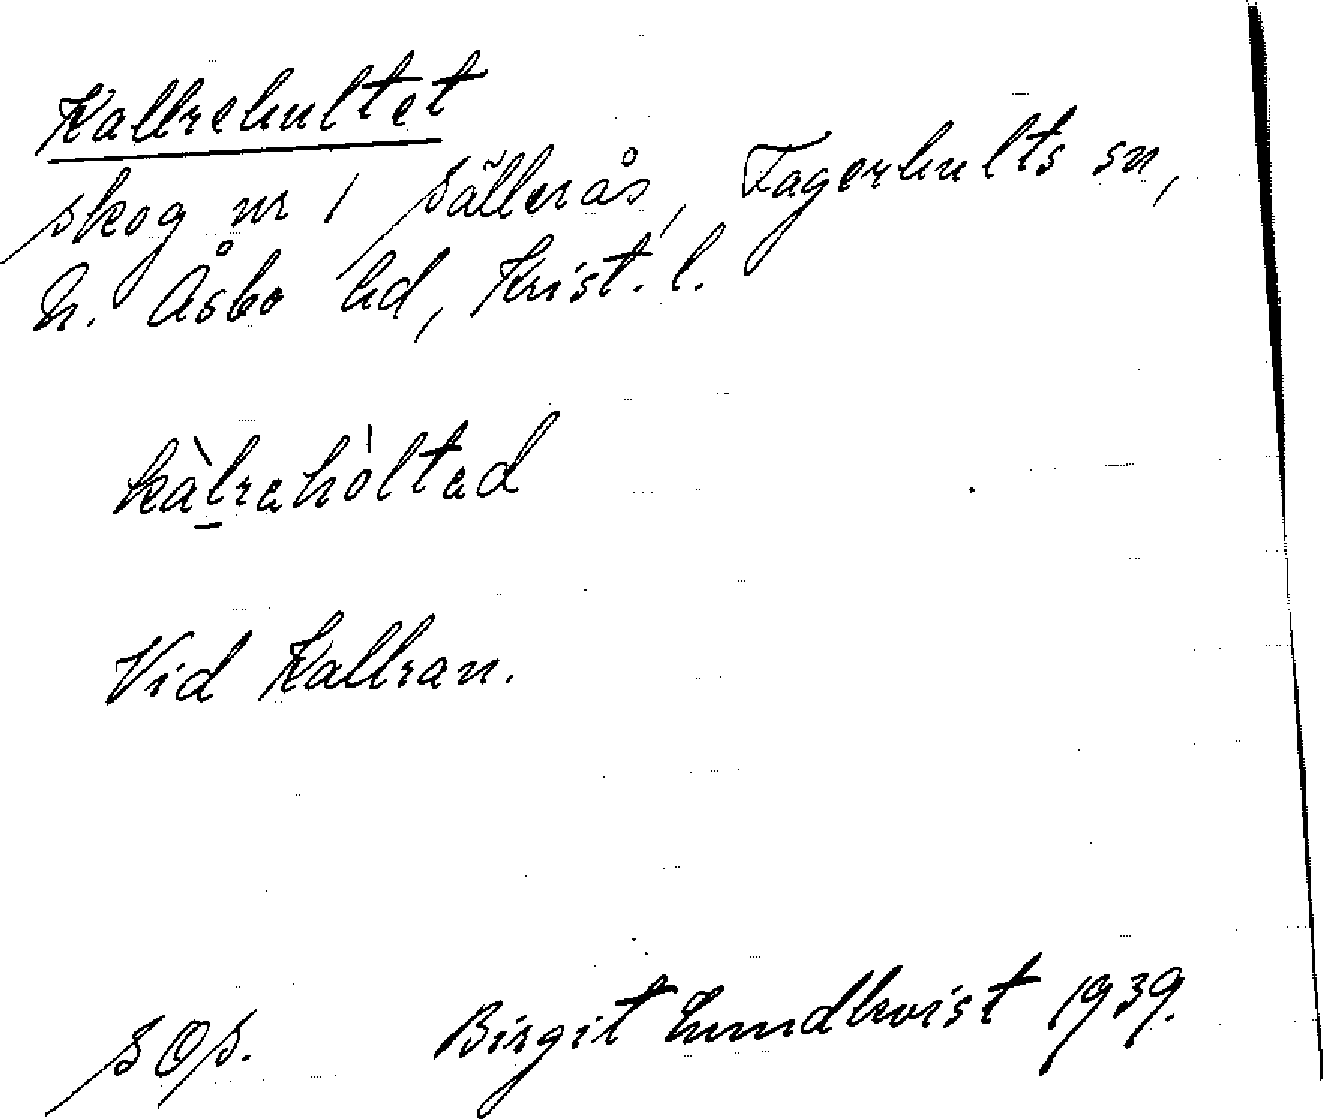 Kallrehultet
skog nr 1 Sällerås, Fagerhults sn,
N. Åsbo hd, Krist. l.
kàlrahòltad
Vid Kallran.
SOS. Birgit Lundkvist 1939.